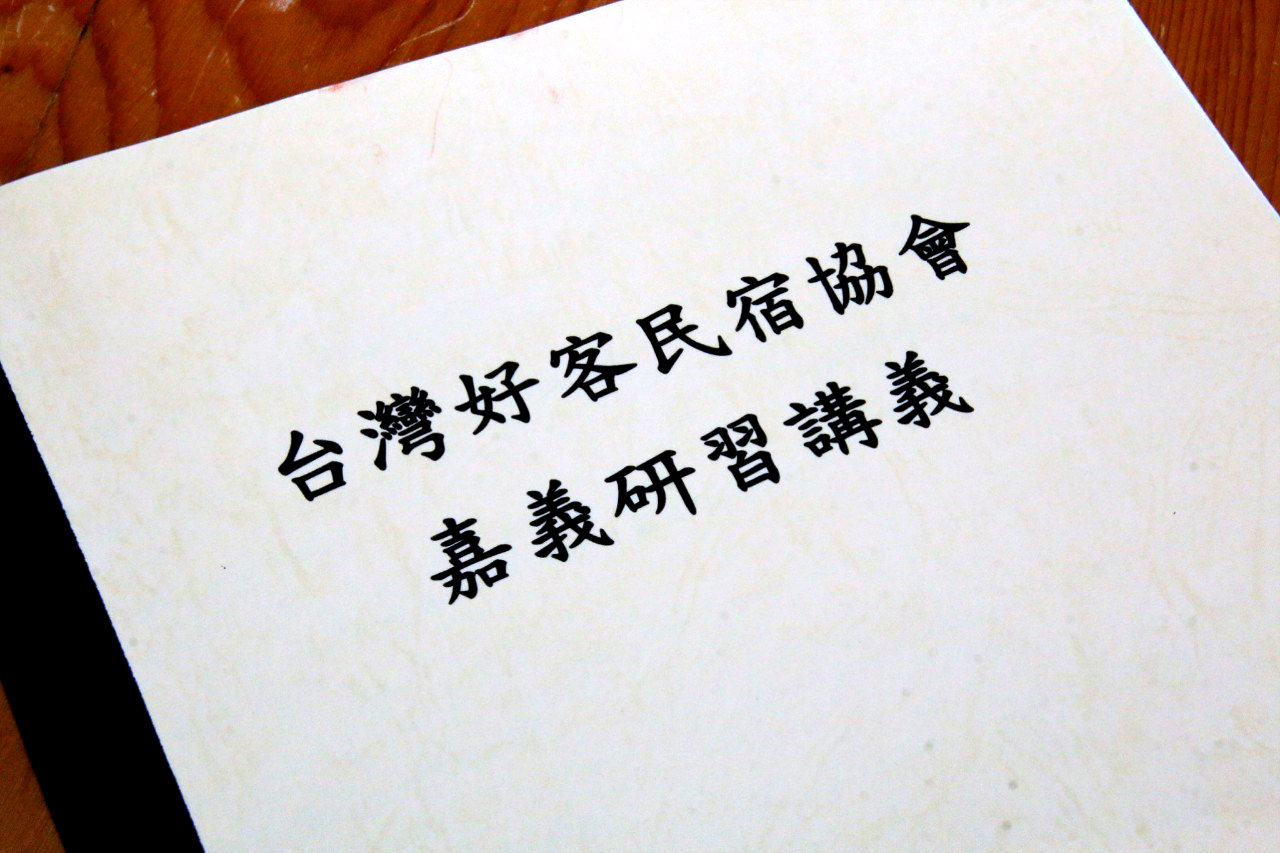 台灣好客民宿協會
嘉義研習講義